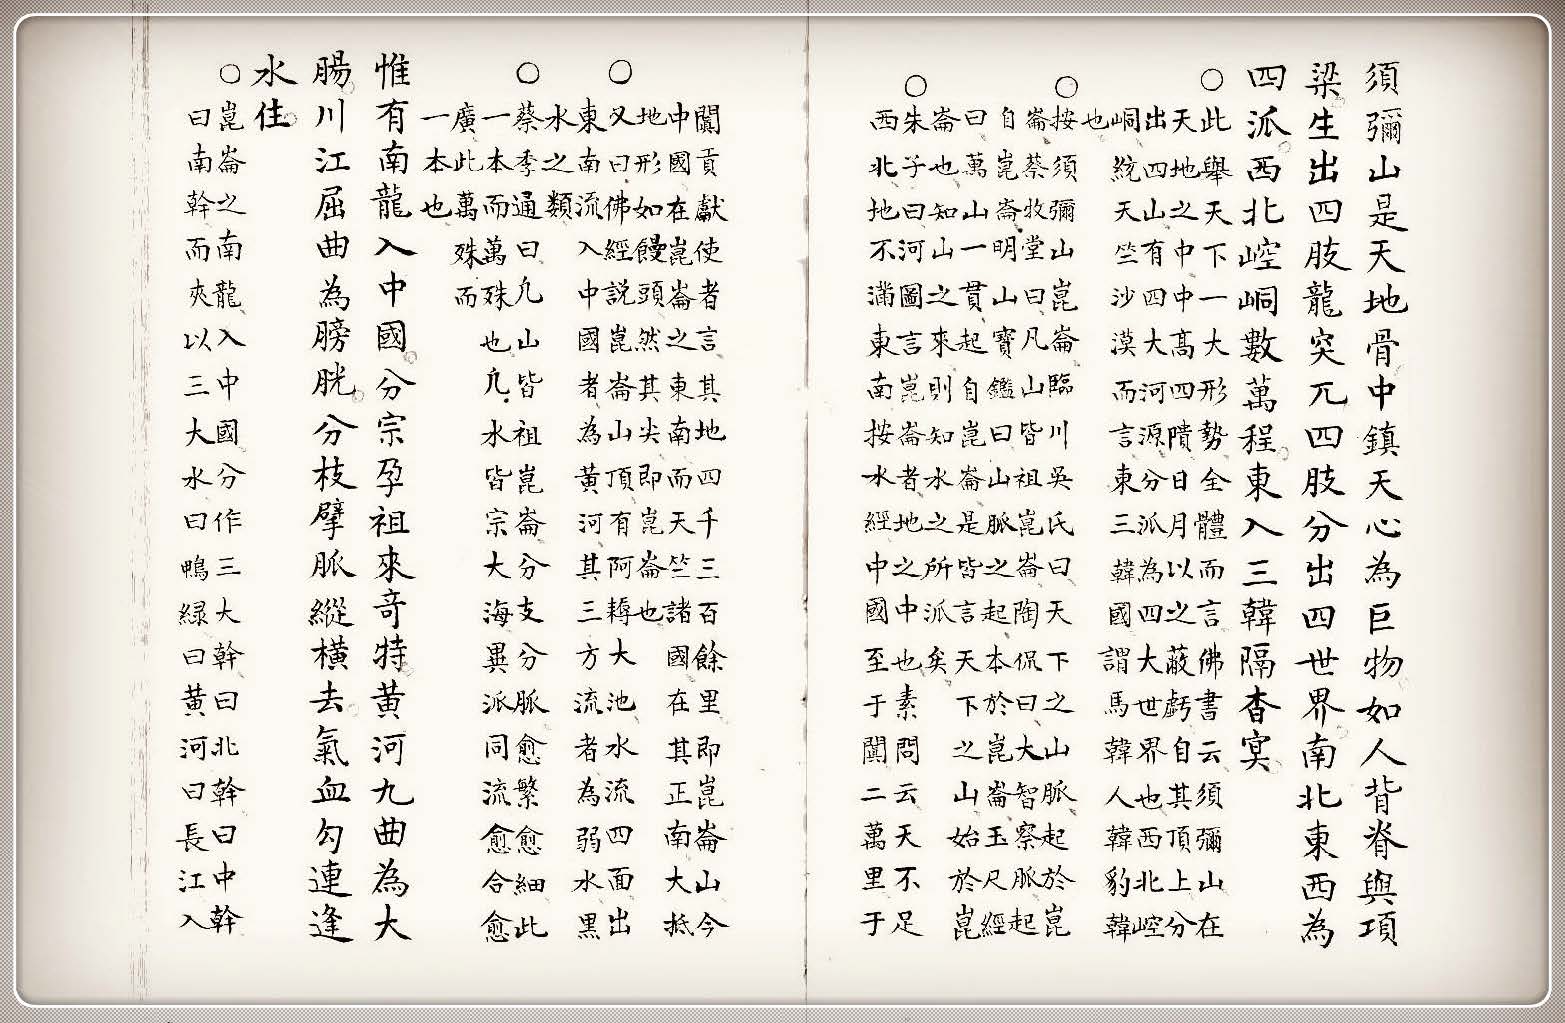 須彌山是天地骨中鎮天心為巨物如人背脊與項
梁生出四肢龍突兀四肢分出四世界南北東西為
四派西北崆峒數萬程東入三韓隔杳冥
○此舉天下一大形勢全體而言佛書云須彌山在
天地之中中高四隤日月以之蔽虧自其頂上分
出四山有四大河源分派為四大世界也西北崆
峒統天竺沙漠而言東三韓國謂馬韓人韓豹韓
也
○按須彌山崑崙臨川吳氏曰天下之山脈起於崑
崙蔡牧堂曰凡山皆祖崑崙陶侃曰大智察脈起
自崑崙明山寶鑑曰山脈之起本於崑崙玉尺經
曰萬山一貫起自崑崙是皆言天下之山始於崑
崙也知山之來則知水之所派矣
○朱子曰河圖言崑崙者地之中也素問云天不足
西北地不滿東南按水經中國至于闐二萬里于
闐貢獻使者言其地四千三百餘里即崑崙山今
中國在崑崙之東南而天竺諸國在其正南大抵
地形如饅頭然其尖即崑崙也
○又曰佛經説崑崙山頂有阿耨大池水流四面出
東南流入中國者為黃河其三方流者為弱水黑
水之類
○蔡季通曰凡山皆祖崑崙分支分脈愈繁愈細此
一本而萬殊也凡水皆宗大海異派同流愈合愈
廣此萬殊而
一本也
惟有南龍入中國分宗孕祖來奇特黃河九曲為大
腸川江屈曲為膀胱分枝擘脈縱橫去氣血勾連逢
水住
○崑崙之南龍入中國分作三大幹曰北幹曰中幹
曰南幹而夾以三大水曰鴨緑曰黃河曰長江入